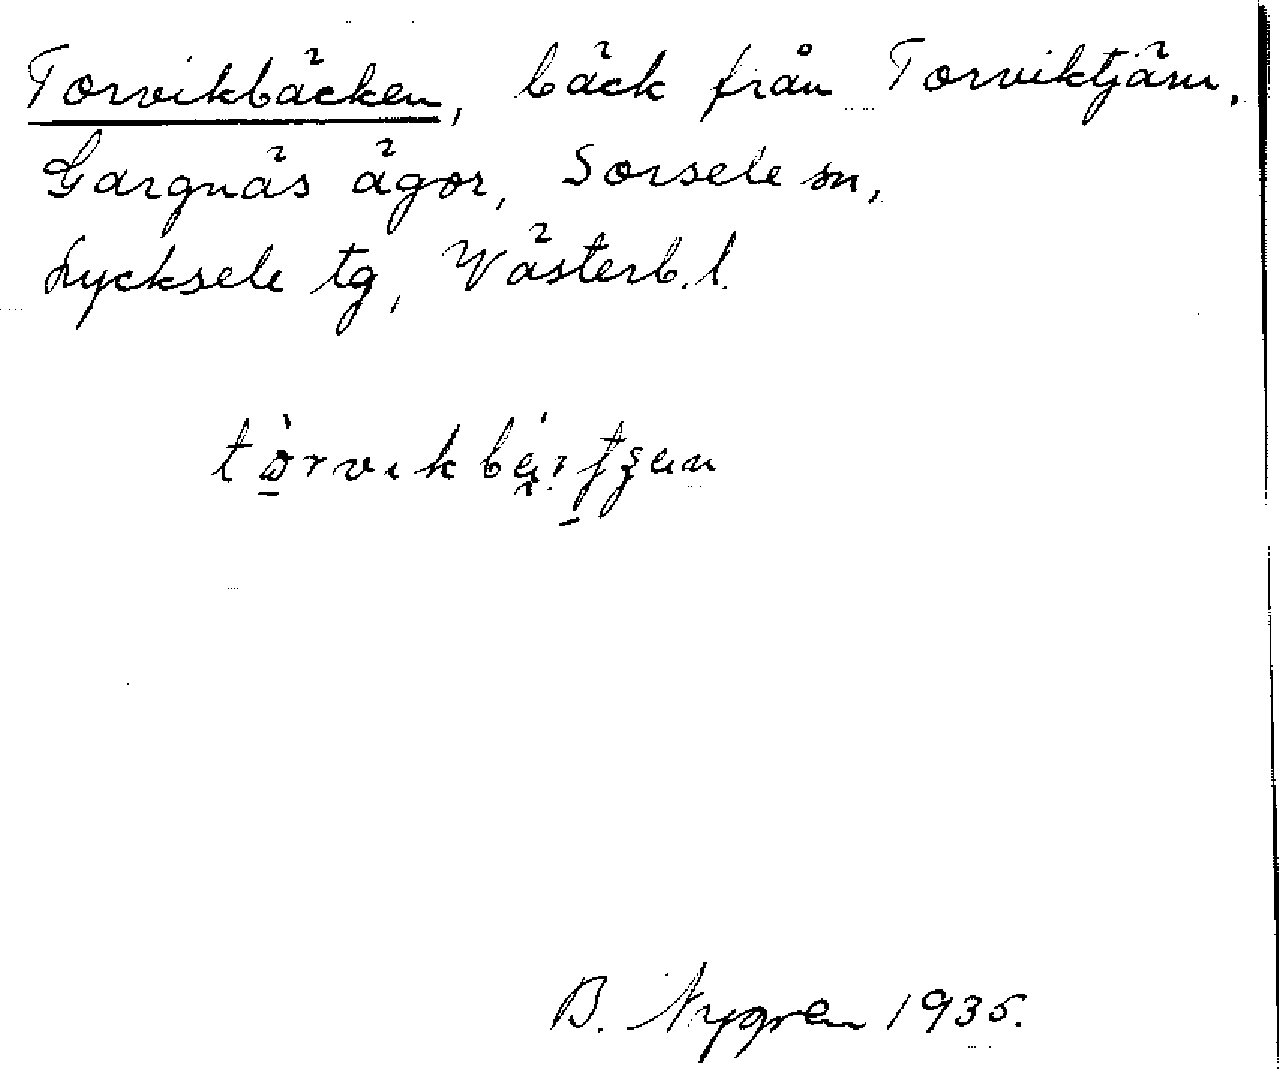 Torvikbäcken, bäck från Torviktjärn,
Gargnäs ägor, Sorsele sn,
Lycksele tg, Västerb. l.
B. Nygren 1935.